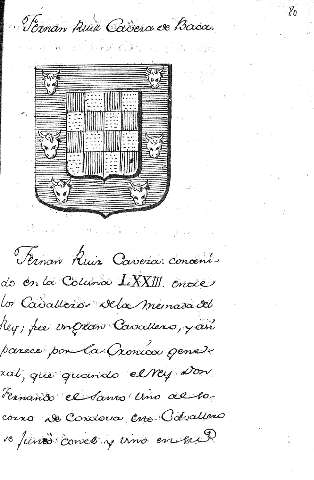 80
Fernan Ruiz Cavesa de Baca.
Fernan Ruiz Cavesa. conteni-
do en la Coluna LXXIII. entre
los Cavalleros de la Mesnada del
Rey; fue un gran Cavallero, y asi
parece por la Cronica gene-
ral, que quando el Rey Don
Fernando el Santo vino al so-
corro de Cordova este Cavallero
se junto con el y vino en su